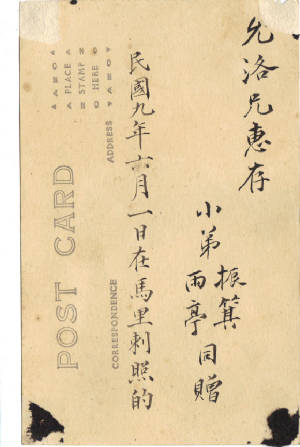 允洛兄惠存
小弟 振箕 雨亭 同贈
民國九年六月一日在馬里刺照的
POST CARD
CORRESPONDENCE
ADDRESS
PLACE
STAMP
HERE